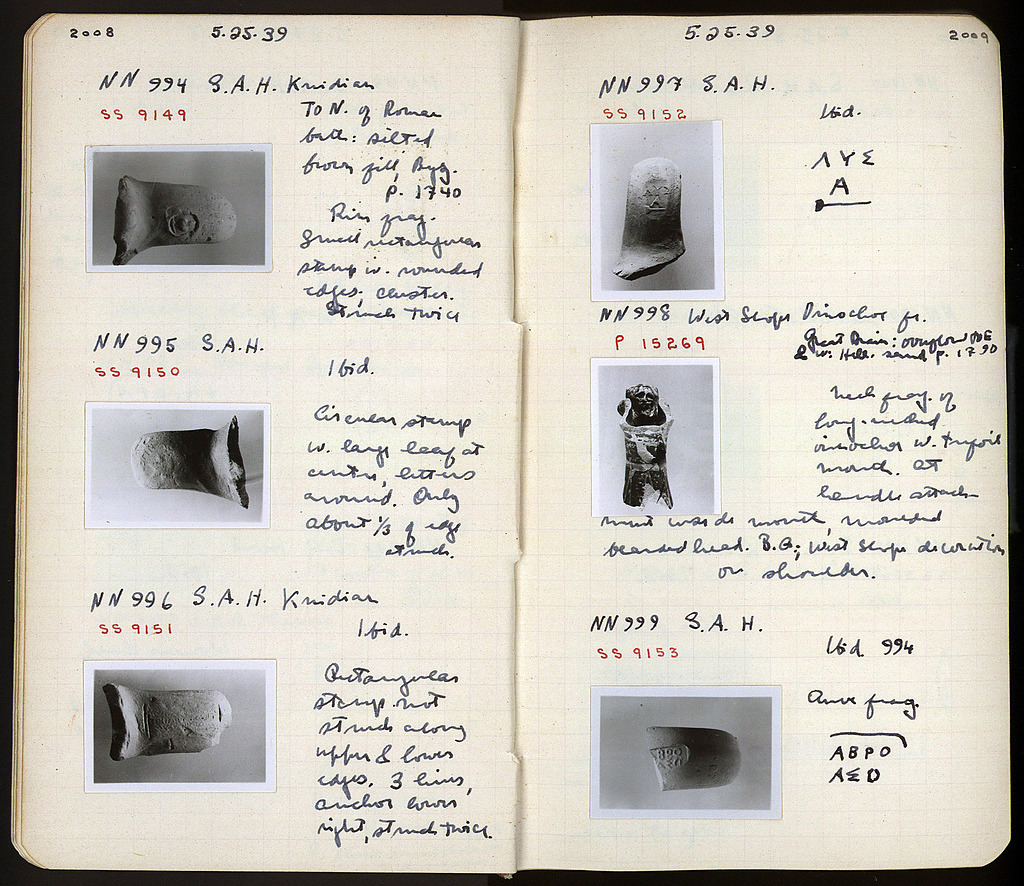 2008
5.25.39
NN 994 S.A.H. Knidian
SS 9149
To N. of Roman
bath: silted
brown fill, Byz.
p. 1740
Rim frag.
Small rectangular
stamp w. rounded
edges; cluster.
Struck twice
NN 995 S.A.H.
SS 9150
Ibid.
Circular stamp
w. large leaf at
centre, letters
around. Only
about 1/3 of edge
struck.
NN 996 S.A.H. Knidian
SS 9151
Ibid.
Rectangular
stamp not
struck along
upper & lower
edges. 3 lines,
anchor lower
right, struck twice.
5.25.39
2009
NN 997 S.A.H.
SS 9152
Ibid.
ΛΥΣ
Α
NN 998 West Slope Oinochoe fr.
P 15269
Great Drain: overflow
w. Hell. sand p. 1790
Neck frag. of
long-necked
oinochoe w. trefoil
mouth. At
handle attach-
ment inside mouth, moulded
bearded head. B.G.; West Slope decoration
on shoulder.
NN 999 S.A.H.
SS 9153
Ibid. 994
frag.
ΑΒΡΟ
ΑΣΟ